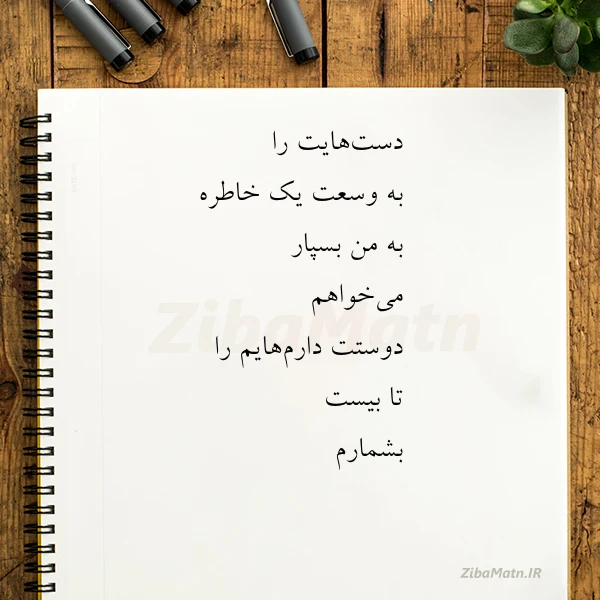 دست‌هایت را
به وسعت یک خاطره
به من بسپار
می‌خواهم
دوستت دارم‌هایم را
تا بیست
بشمارم
ZibaMatn
ZibaMatn.IR